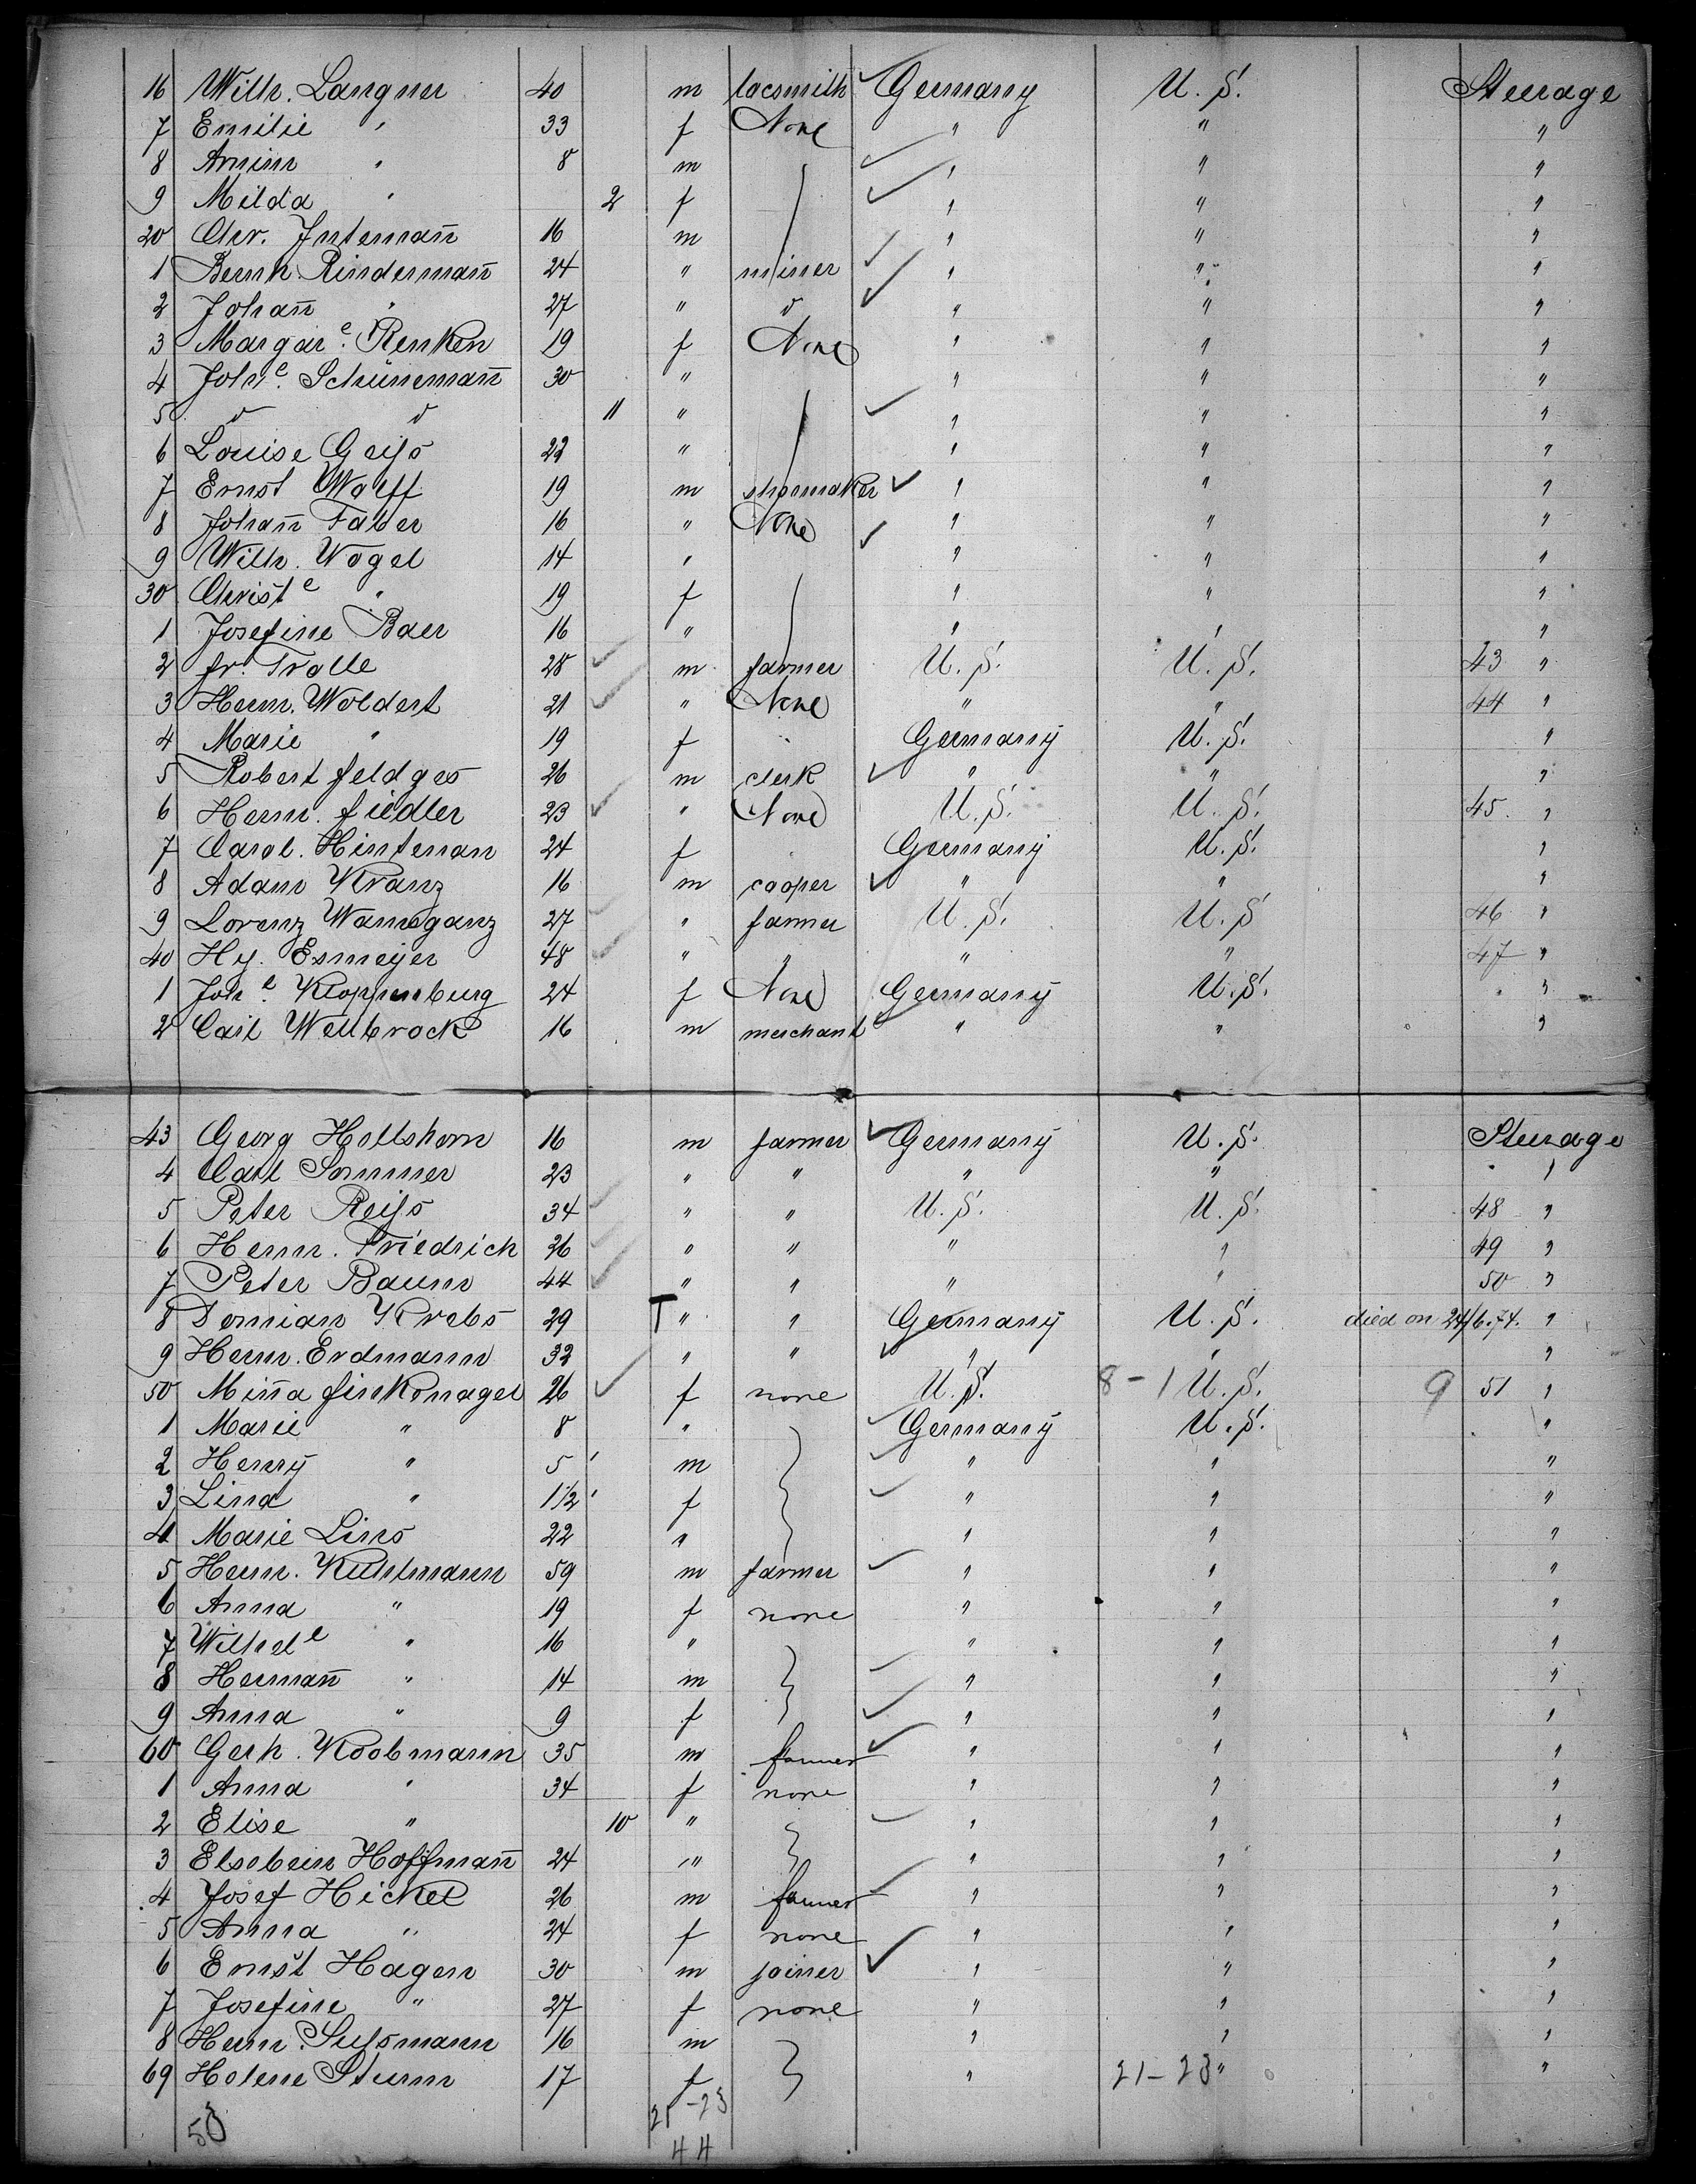 16 Wilh. Langner 40 m locsmith Germany U. S. Steerage
7 Emilie " 33 f None " " "
8 Armin " 8 m " " "
9 Milda " 2 f " " "
20 Chr. Intemañ 16 m " " "
1 Bernh Rindermañ 24 " miner " " "
2 Johañ " 27 " d " " "
3 Margar e. Renken 19 f None " " "
4 Joh e. Schünemañ 30 " " " "
5 d d 11 " " " "
6 Louise Geiss 22 " " " "
7 Ernst Wolff 19 m shoemaker " " "
8 Johañ Faber 16 " None " " "
9 Wilh. Vogel 14 " " " "
30 Christ e " 19 f " " "
1 Josefine Baer 16 " " " "
2 fr. Trolle 28 m farmer U. S. U. S. 43 "
3 Herm. Woldert 21 " None " " 44 "
4 Marie " 19 f Germany U. S. "
5 Robert feldges 26 m clerk " " "
6 Herm. fiedler 23 " None U. S. U. S. 45 "
7 Carol. Hinteman 24 f Germany U. S. "
8 Adam Kranz 16 m cooper " " "
9 Lorenz Wameganz 27 " farmer U. S. U. S 46 "
40 Hy. Esmeyer 48 " " " " 47 "
1 Joh e. Kloppenburg 24 f None Germany U. S. "
2 Carl Wellbrock 16 m merchant " " "
43 Georg Hollshorn 16 m farmer Germany U. S. Steerage
4 Carl Sommer 23 " " " " "
5 Peter Reiss 34 " " U. S. U. S. 48 "
6 Herm. Friedrich 26 " " " " 49 "
7 Peter Baum 44 " " " " 50 "
8 Domian Krebs 29 T " " Germany U. S. died on 24/6.74. "
9 Herm. Erdmann 32 " " " " "
50 Miña finkonagel 26 f none U. S. 8-1 U. S. 9 51 "
1 Marie " 8 " Germany U. S. "
2 Henry " 5 m " " "
3 Lina " 1 1/2 f " " "
4 Marie Lins 22 " " " "
5 Herm. Kuhlmann 59 m farmer " " "
6 Anna " 19 f none " " "
7 Wilhel e " 16 " " " "
8 Hermañ " 14 m " " "
9 Anna " 9 f " " "
60 Gerh. Koobmann 35 m farmer " " "
1 Anna " 34 f none " " "
2 Elise " 10 " " " "
3 Elsebein Hoffmañ 24 " " " "
4 Josef Hickel 26 m farmer " " "
5 Anna " 24 f none " " "
6 Ernst Hagen 30 m joiner " " "
7 Josefine " 27 f none " " "
8 Herm. Sulsmann 16 m " " "
69 Helene Sturm 17 f " 21-23 " "
50 21-23
44